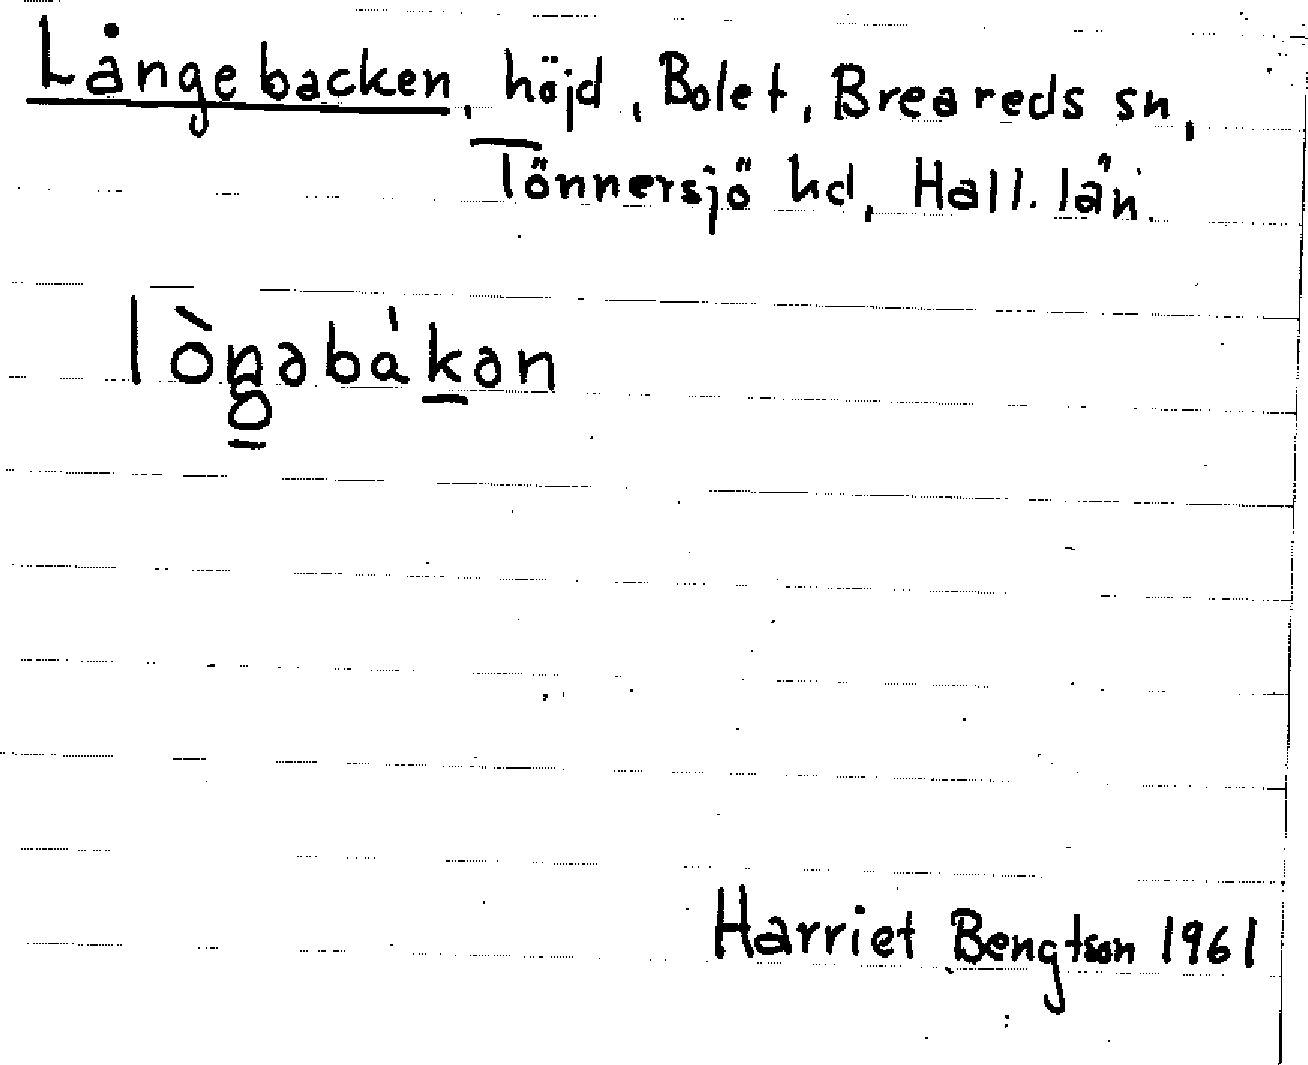 Långebacken, höjd, Bolet, Breareds sn,
Tönnersjö hd, Hall. län.
lòŋəbákən
Harriet Bengtson 1961